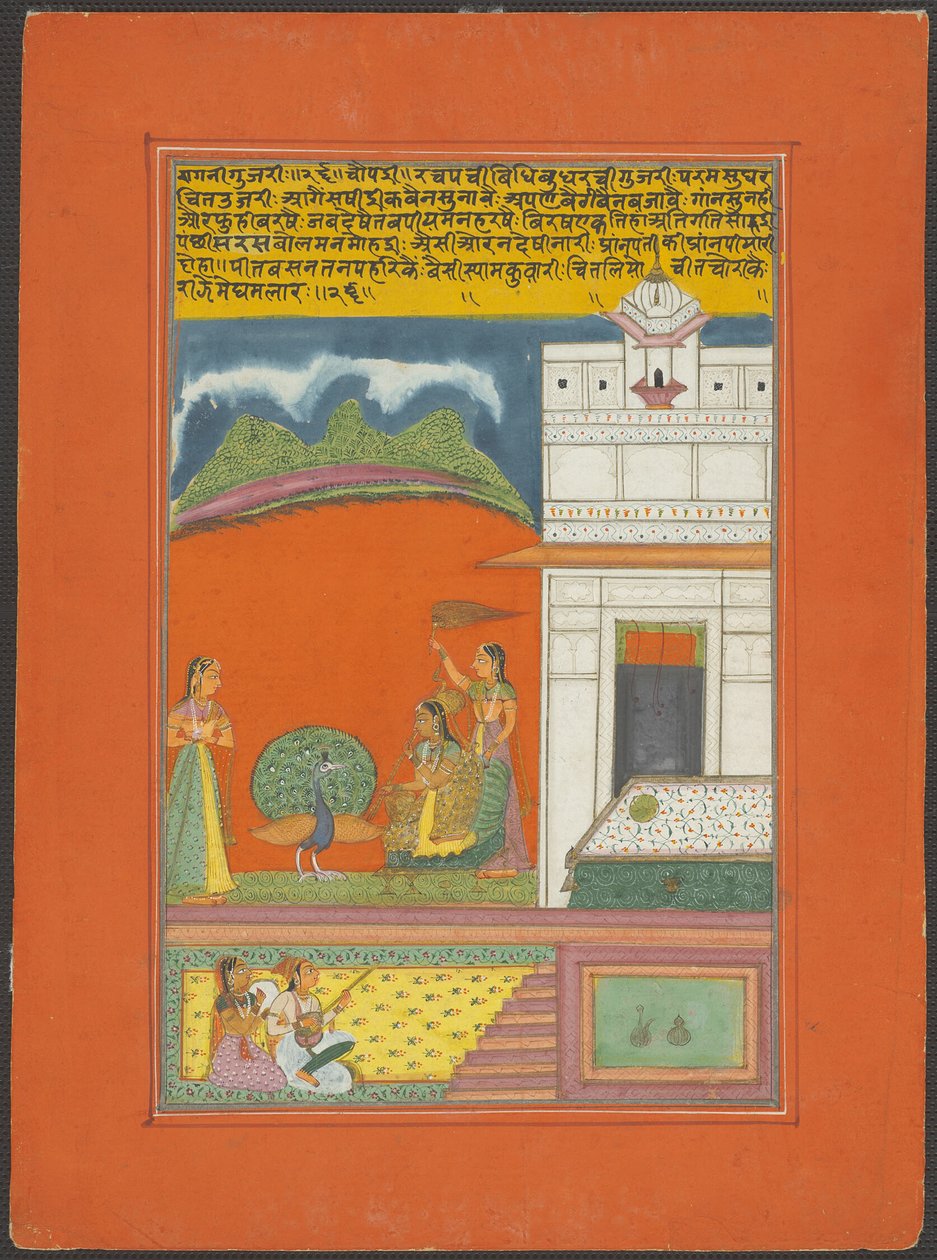 रागनी गुजरी: ॥२६॥ चौपई ॥ रच पची विधि बुध रची गुजरी: परम सुघर
चित उजरी: आगैं सषी ईक बैन सुनावै: अपण बेंनी बैन बजावै: गांन सुनही
और फुही बरषै: जब देषै तब पीय मन हरषै: बिरष एक तिहां अति गति सोहई
पंछी सरस बोल मन मोहई: अैसी और न देषी नारी: प्रांनपती की प्रांन पीयारी
दोहा ॥ पीत बसन तन पहरिकैं: बैसी स्याम कुवारी: चित लियो चीतचोरकै:
रागमेघमलार: ॥२६॥ ॥ ॥ ॥